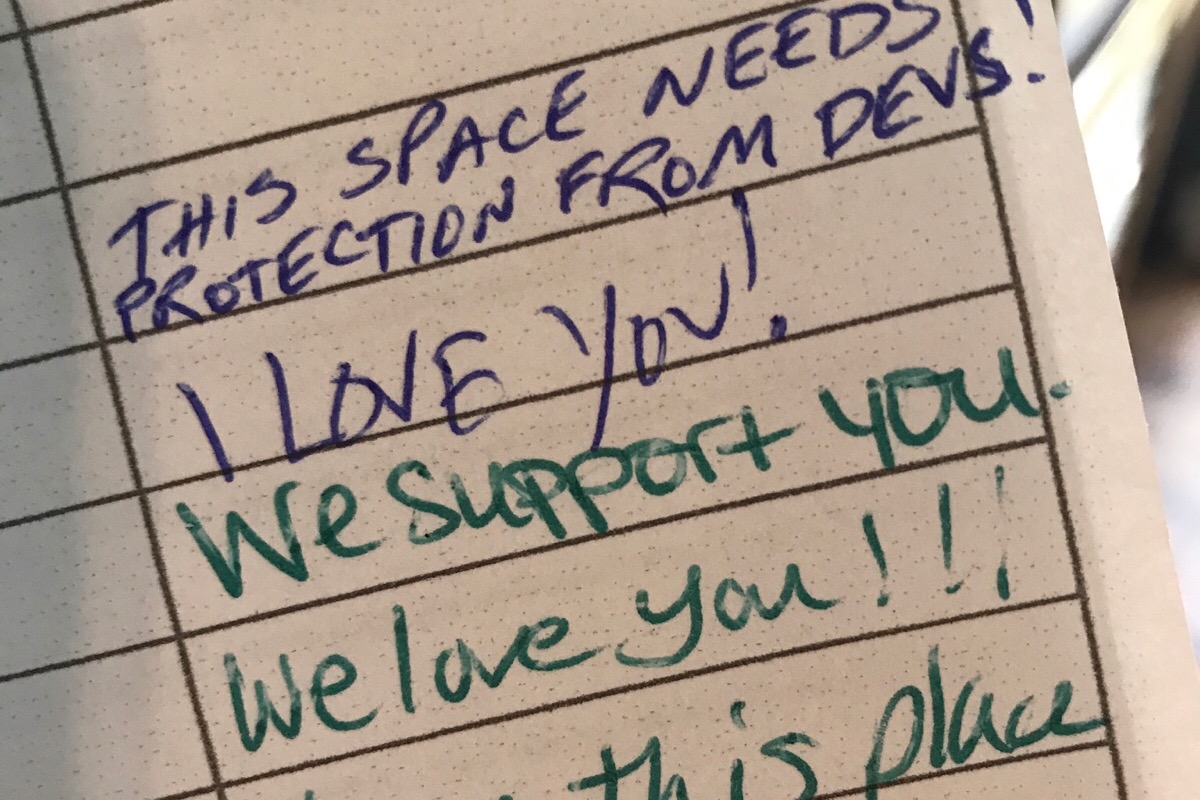 THIS SPACE NEEDS
PROTECTION FROM DEVS!
I LOVE YOU!
We support you.
We love you!!!
this place